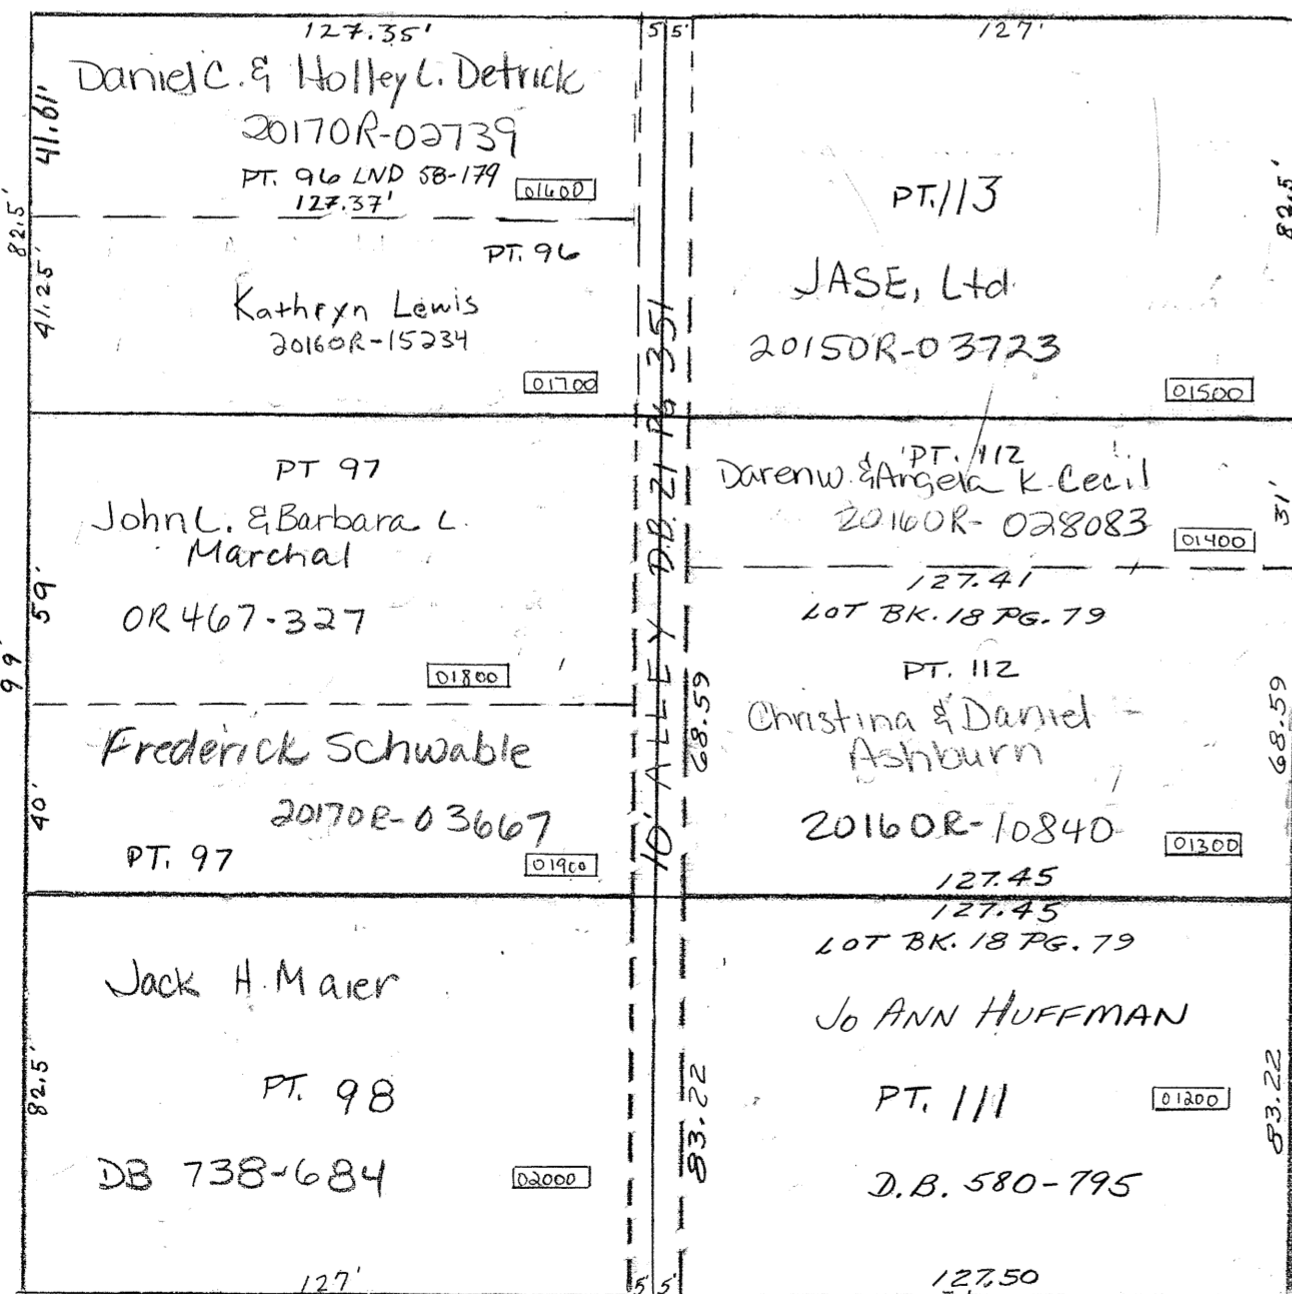 127.35'
Daniel C. & Holley L. Detrick
20170R-02739
PT. 96 LND 58-179
01600
127.37'
41.61'
82.5'
41.25'
PT. 96
Kathryn Lewis
20160R-15234
01700
PT 97
John L. & Barbara L.
Marchal
OR 467-327
01800
59'
99'
Frederick Schwable
20170R-03667
PT. 97
01900
40'
Jack H. Maier
PT. 98
DB 738-684
02000
82.5'
127'
5 5'
10' ALLEY D.B. 21 PG 351
5' 5'
127'
PT. 113
JASE, Ltd.
20150R-03723
01500
82.5'
PT. 112
Daren W. & Angela K. Cecil
20160R-028083
01400
31'
127.41
LOT BK. 18 PG. 79
PT. 112
Christina & Daniel
Ashburn
20160R-10840
01300
68.59
68.59
127.45
127.45
LOT BK. 18 PG. 79
Jo ANN HUFFMAN
PT. 111
01200
D.B. 580-795
83.22
83.22
127.50